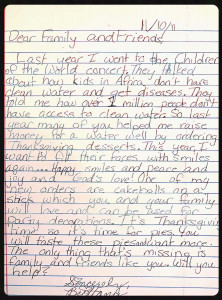 11/10/11
Dear Family and friends,
Last year I went to the Children
of the World concert. They talked
about how kids in Africa don't have
clean water and get diseases. They
told me how over 1 million people don't
have access to clean water. So last
year many of you helped me raise
money for a water well by ordering
Thanksgiving desserts. This year I
want to fill their faces with smiles
again. Happy smiles and peace and
joy and God's love! One of my
new orders are cakeballs on a
stick which you and your family
will love and can be used for a
party
It's Thanksgiving
time so it's time for pies. You
will taste these pies and want more.
The only thing that's missing is
family and friends like you. Will you
help?
Sincerely,